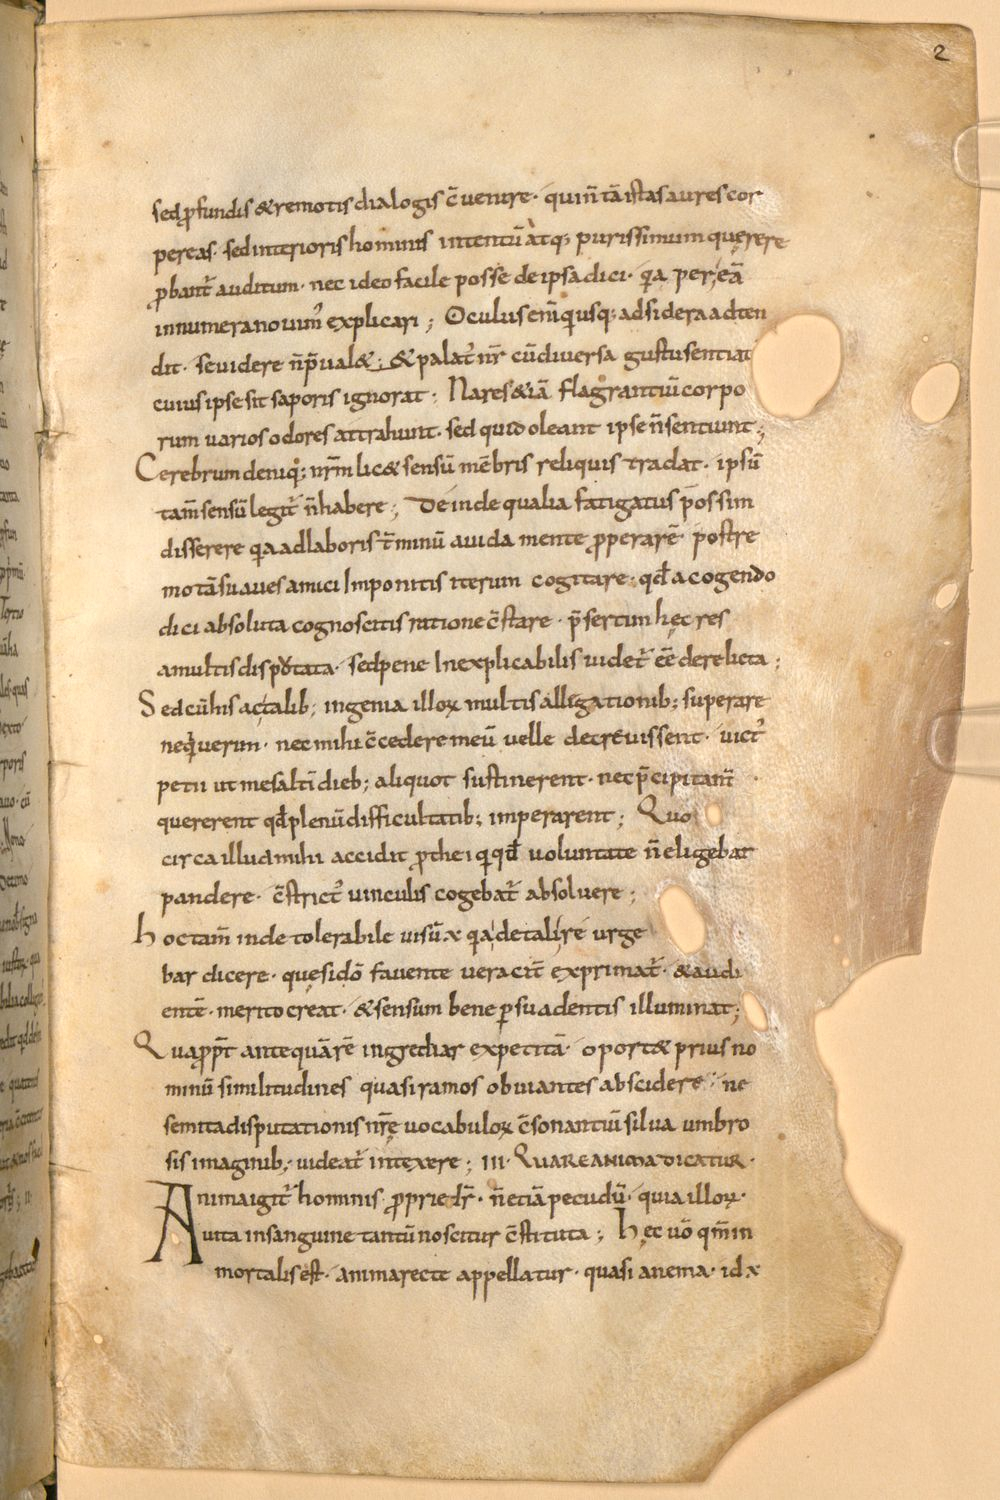 2
sed ꝓfundis & remotis dialogis c̄ venire · qui n̄ tā istas aures cor
pereas · sed interioris hominis intentū atq; purissimum querere
ꝓbant̄ auditum · nec ideo facile posse de ipsa dici · qa per eā
innumera novim᷒ explicari ; Oculus enī qusq; ad sidera adten
dit · se videre n̄ p̄ual& ; & palat᷒ nr̄ cū diversa gustu sentiat
cuius ipse sit saporis ignorat ; Nares &iā flagrantiū corpo
rum varios odores attrahunt · sed quid oleant ipse n̄ sentiunt ;
Cerebrum deniq; nr̄m lic& sensū mēbris reliquis tradat · ipsū
tam̄ sensū legit̄ n̄ habere ; Deinde qualia fatigatus p̄ossim
disserere qa ad laboris t̄minū avida mente ꝓperarē · postre
mo tā suaves amici Imponitis iterum cogitare · qđ a cogendo
dici absoluta cognoscitis ratione c̄stare · p̄sertim hęc res
a multis disputata · sed pene Inexplicabilis videt̄ eē derelicta ;
Sed cū his ac talib; ingenia illoꝝ multis alligationib; superare
neq̇verim · nec mihi c̄cedere meū velle decrevissent · vict᷒
petii ut me saltī dieb; aliquot sustinerent · nec p̄cipitant̄
quererent qđ plenū difficultatib; imperarent ; Quo
circa illud mihi accidit ꝓthei q̇ qđ voluntate n̄ eligebat
pandere · c̄strict᷒ vinculis cogebat̄ absolvere ;
hoc tam̄ inde tolerabile visū x qa de tali re urge
bar dicere · que sidō favente veracit̄ exprimat̄ · & audi
entē · merito creat · & sensum bene ꝑsuadentis illuminat ;
Quaꝓpt̄ antequā rē ingrediar expetitā · oport& prius no
minū similitudines quasi ramos obviantes abscidere · ne
semita disputationis nr̄ę vocabuloꝝ c̄sonantiū silva umbro
sis imaginib; videat̄ intexere ; III · QUARE ANIMA DICATUR ·
Anima igit̄ hominis ꝓprie dr̄ · n̄ etiā pecudū · quia illoꝝ ·
vita in sanguine tantū noscitur c̄stituta ; hęc vō qm̄ in
mortalis est · anima recte appellatur · quasi anema · id x